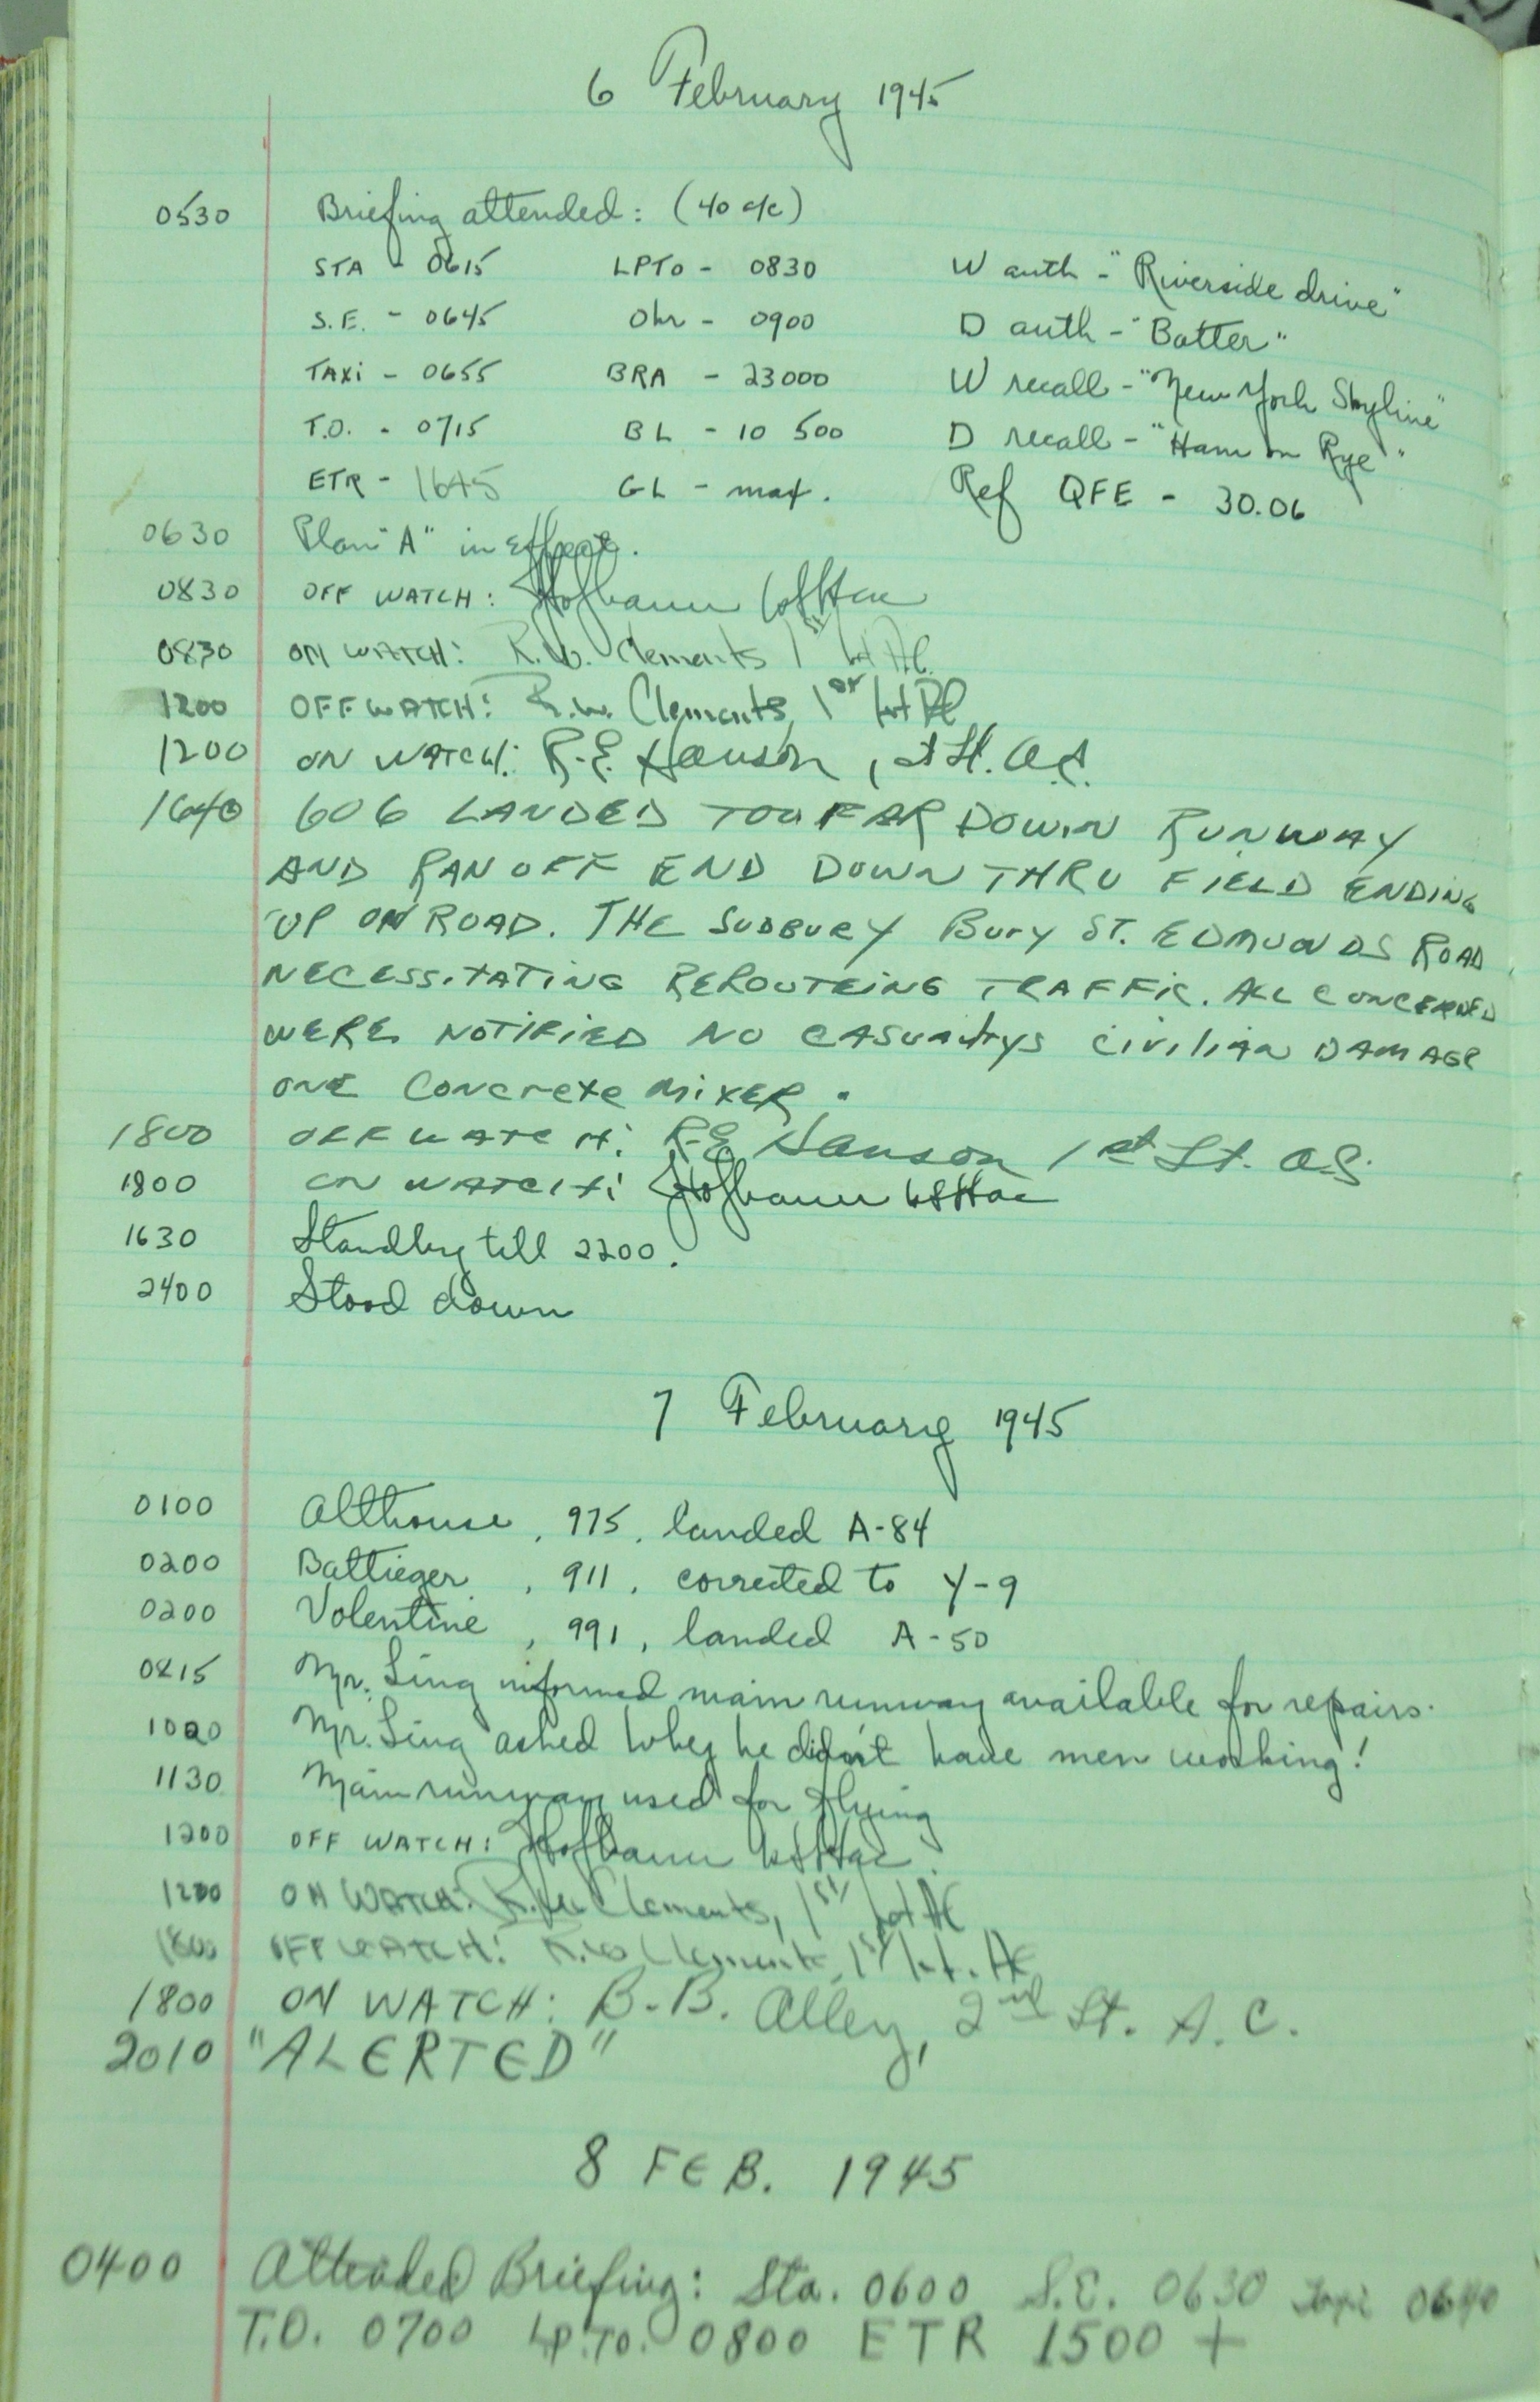 6 February 1945
0530 Briefing attended: (40 a/c)
STA - 0615 LPTO - 0830 W auth - "Riverside drive"
S.E. - 0645 Ohr - 0900 D auth - "Batter"
TAXi - 0655 BRA - 23000 W recall - "New York Skyline"
T.O. - 0715 BL - 10 500 D recall - "Ham on Rye"
ETR - 1645 GL - max. Ref QFE - 30.06
0630 Plan "A" in Effect.
0830 OFF WATCH: Hofbauer
0830 ON WATCH: R.W. Clements 1st Lt AC
1200 OFF WATCH: R.W. Clements, 1st Lt AC
1200 ON WATCH: R.E. Hanson, 1st Lt. A.C.
1640 606 LANDED TOO FAR DOWN RUNWAY
AND RAN OFF END DOWN THRU FIELD ENDING
UP ON ROAD. THE SUDBURY Bury ST. EDMUNDS ROAD
NECESSITATING REROUTEING TRAFFIC. ALL CONCERNED
WERE NOTIFIED NO CASUALtys civilian DAMAGE
ONE Concrete MIXER.
1800 OFF WATCH: R.E Hanson 1st Lt. A.C.
1800 ON WATCH: Hofbauer
1630 Standby till 2200.
2400 Stood down
7 February 1945
0100 Althouse, 975, landed A-84
0200 Battieger, 911, corrected to Y-9
0200 Valentine, 991, landed A-50
0815 Mr. Ling informed main runway available for repairs.
1000 Mr. Ling asked why he didn't have men working!
1130 Main runway used for flying
1200 OFF WATCH: Hofbauer
1200 ON WATCH: R.W. Clements, 1st Lt AC
1800 OFF WATCH: R.W Clements, 1st Lt. AC
1800 ON WATCH: B.B. Alley, 2nd Lt. A.C.
2010 "ALERTED"
8 FEB. 1945
0400 Attended Briefing: Sta. 0600 S.E. 0630 Taxi 0640
T.O. 0700 LP.TO. 0800 ETR 1500 +